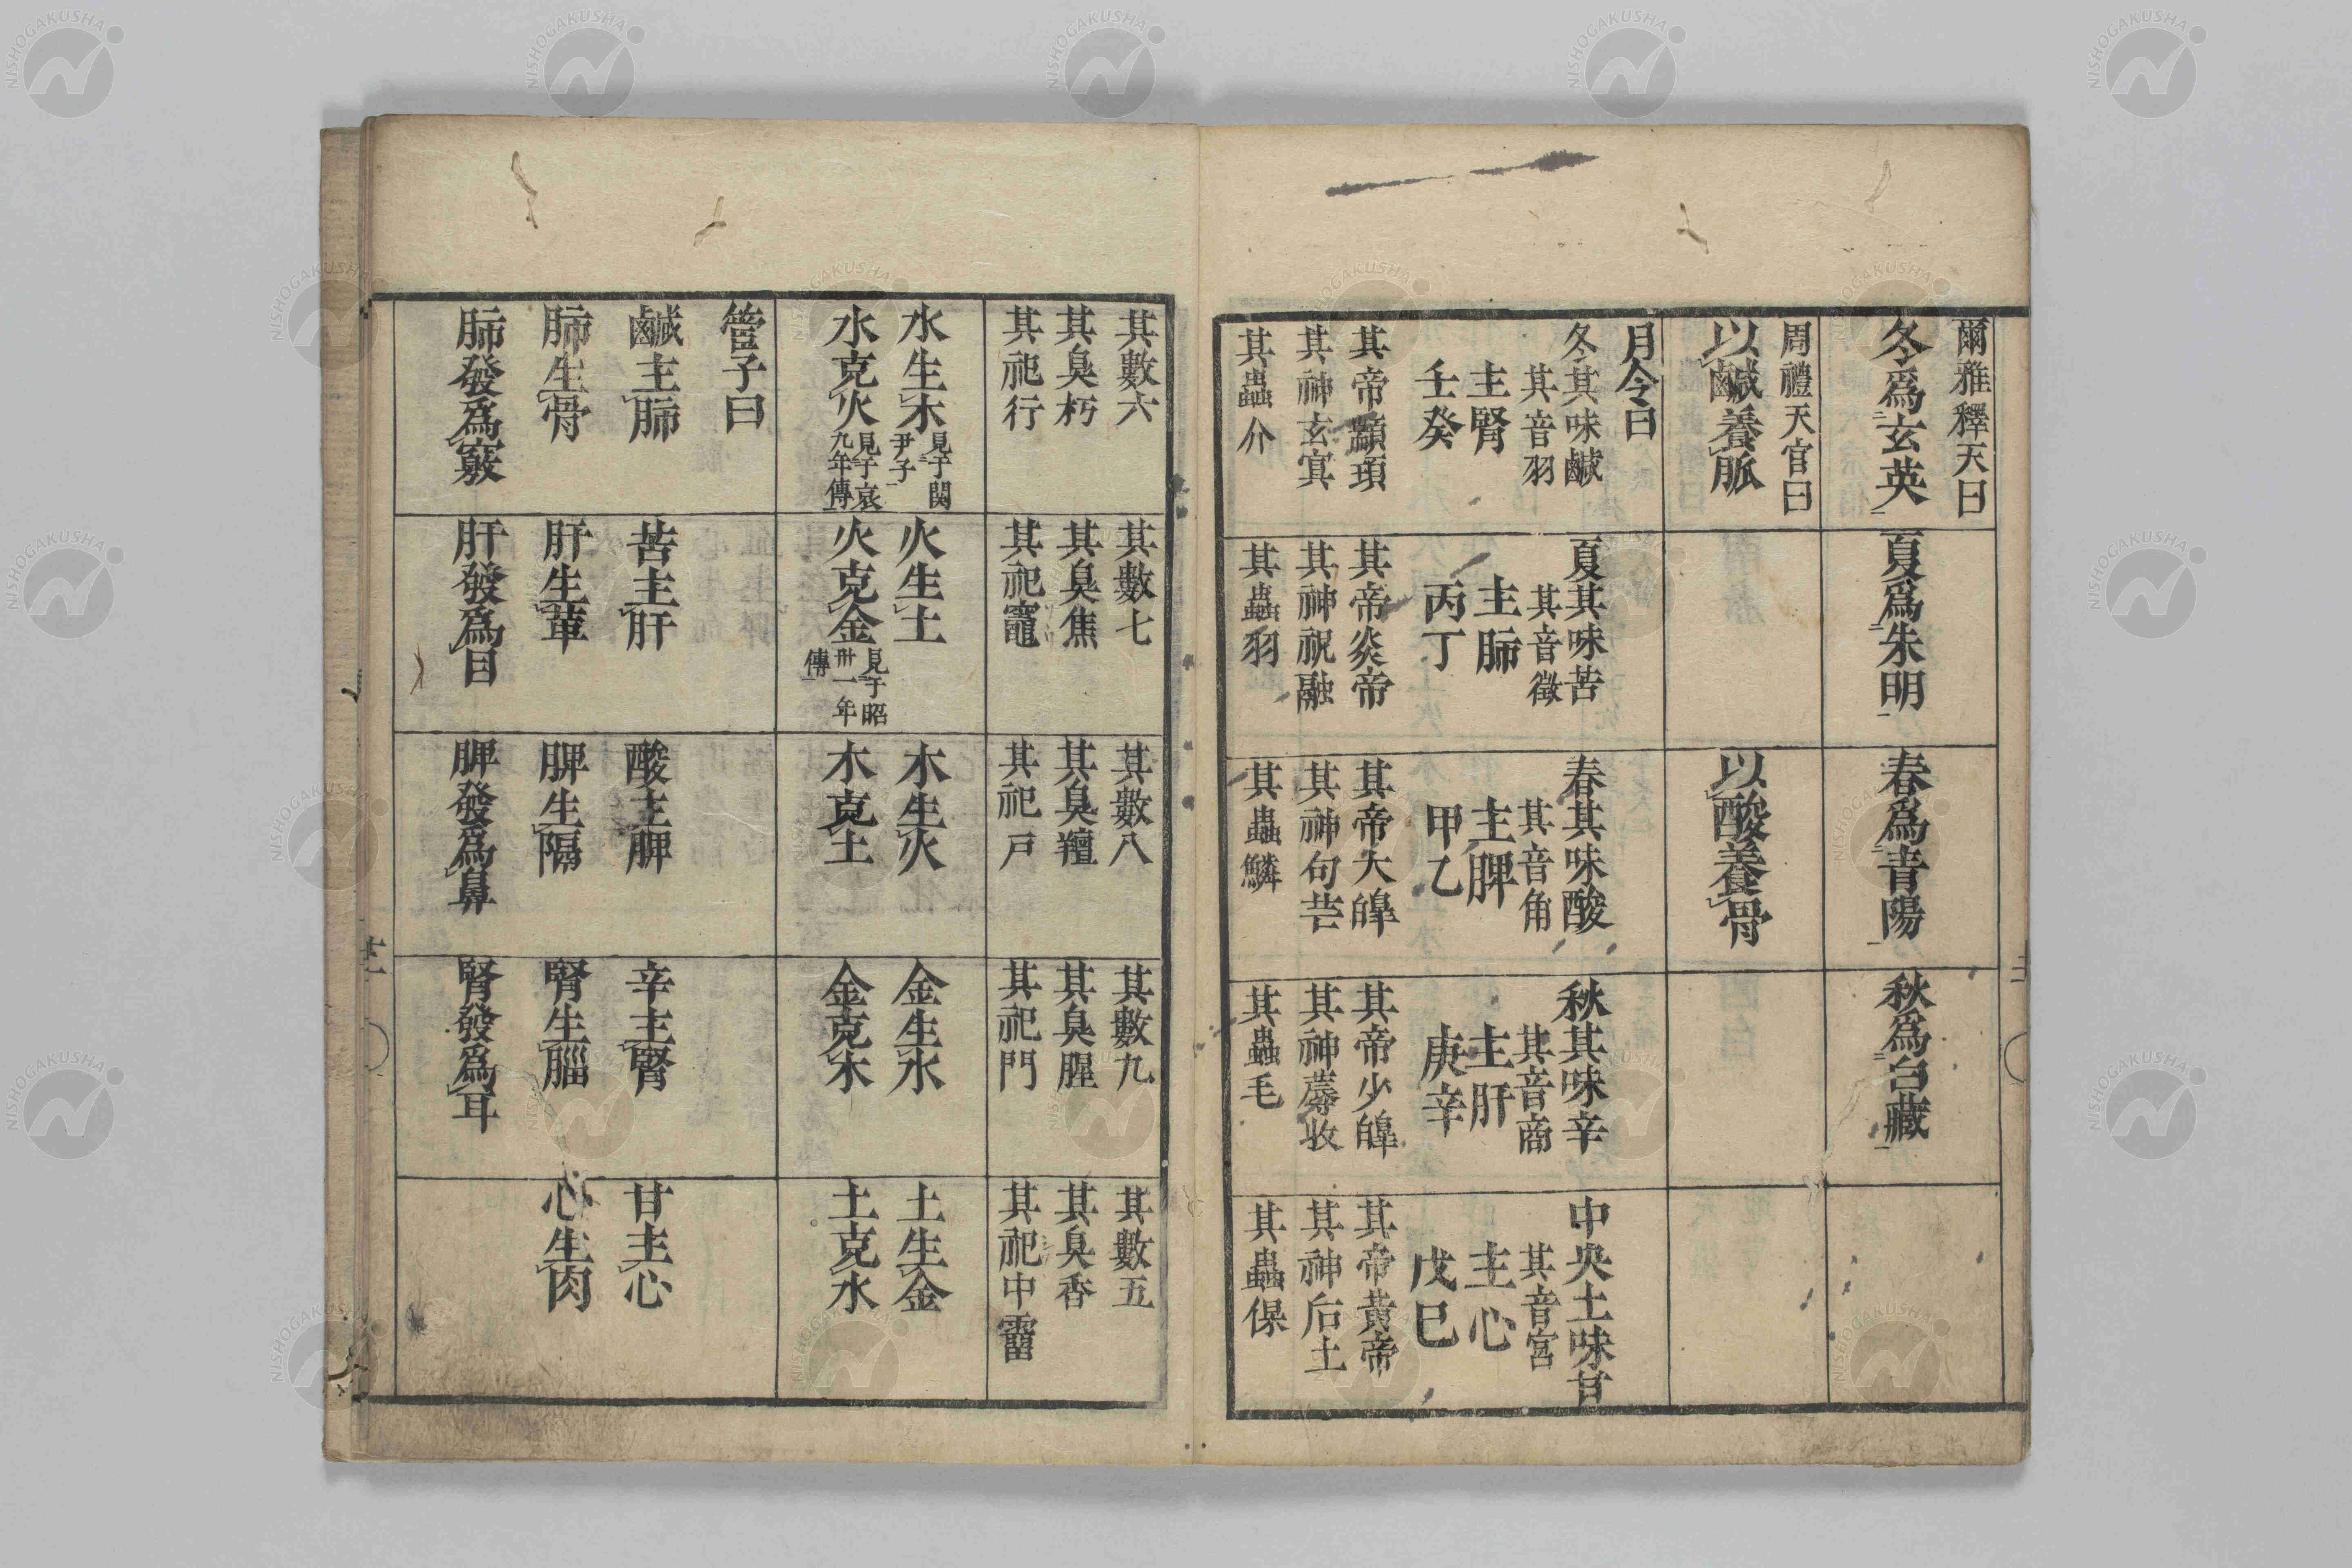 爾雅釋天曰
冬爲玄英
夏爲朱明
春爲青陽
秋爲白藏
周禮天官曰
以鹹養脈
以酸養骨
月令曰
冬其味鹹
其音羽
主腎
壬癸
其帝顓頊
其神玄冥
其蟲介
夏其味苦
其音徵
主肺
丙丁
其帝炎帝
其神祝融
其蟲羽
春其味酸
其音角
主脾
甲乙
其帝大皥
其神句芒
其蟲鱗
秋其味辛
其音商
主肝
庚辛
其帝少皥
其神蓐收
其蟲毛
中央土味甘
其音宮
主心
戊巳
其帝黃帝
其神后土
其蟲倮
其數六
其臭朽
其祀行
其數七
其臭焦
其祀竈
其數八
其臭羶
其祀戸
其數九
其臭腥
其祀門
其數五
其臭香
其祀中霤
水生木
見于関
尹子
水克火
見于哀
九年傳
火生土
火克金
見于昭
卅一年
傳
木生火
木克土
金生水
金克木
土生金
土克水
管子曰
鹹主肺
肺生骨
肺發爲竅
苦主肝
肝生革
肝發爲目
酸主脾
脾生隔
脾發爲鼻
辛主腎
腎生腦
腎發爲耳
甘主心
心生肉
NISHOGAKUSHA